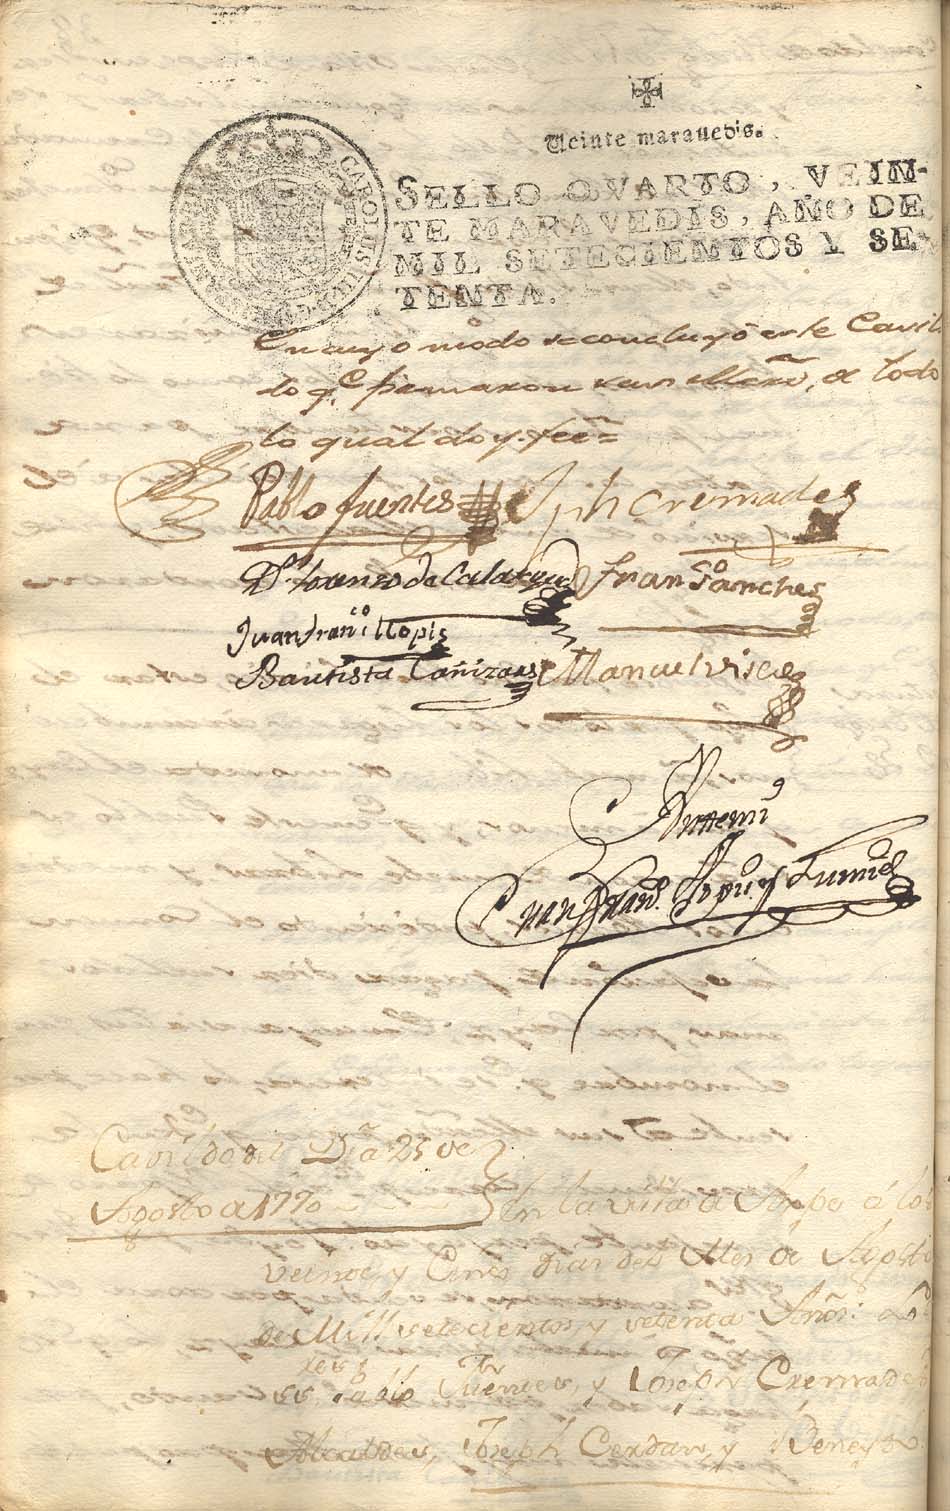 Veinte maravedis.
SELLO QVARTO, VEIN-
TE MARAVEDIS, AÑO DE
MIL SETECIENTOS Y SE-
TENTA.
CAROLUS III D. G. HISPANIAR. REX
En cuyo modo se concluyó este Cavil
do q.e firmaron sus Mers, de todo
lo qual doy fee=
Pablo fuentes Jph Cremades
Dn. Lorenzo de Calatayud Fran.co Sanches
Juan fran.co llopis
Bautista Cañizares Manuel
Antemi
Juan Fran.co
Cavildo del Dia 25 de
Agosto de 1770
En la villa de Aspe á los
veinte, y Cinco dias del Mes de Agosto
de Mill setecientos y setenta Años: Los
SS. Pablo Fuentes, y Joseph Cremades
Alcaldes, Joseph Cerdan, y